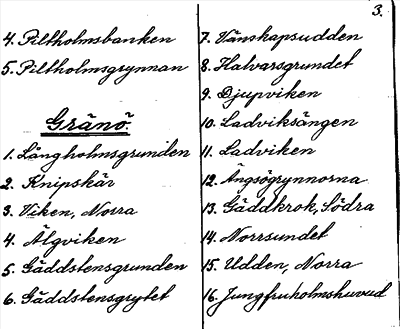 3.
4. Piltholmsbanken
5. Piltholmsgrynnan
Gränö.
1. Långholmsgrunden
2. Knipskär
3. Viken, Norra
4. Älgviken
5. Gäddstensgrunden
6. Gäddstensgrytet
7. Vänskapsudden
8. Halvarsgrundet
9. Djupviken
10. Ladviksängen
11. Ladviken
12. Ängsögrynnorna
13. Gäddkrok, Södra
14. Norrsundet
15. Udden, Norra
16. Jungfruholmshuvud